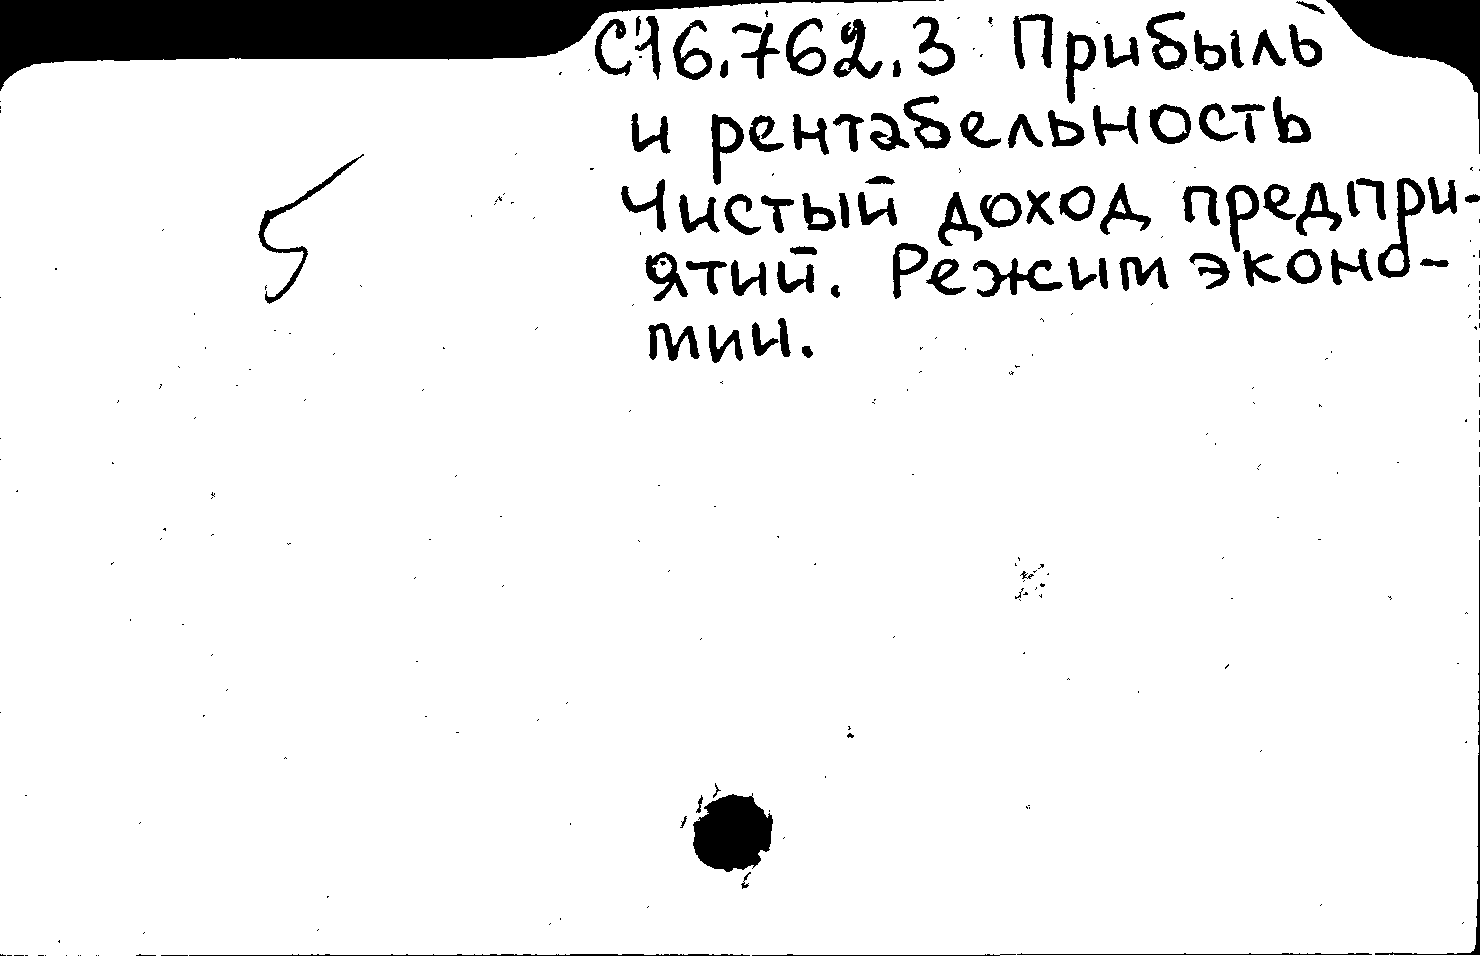 С16.762.3 Прибыль
и рентабельность
Чистый доход предпри-
ятий. Режим эконо-
мии.
5